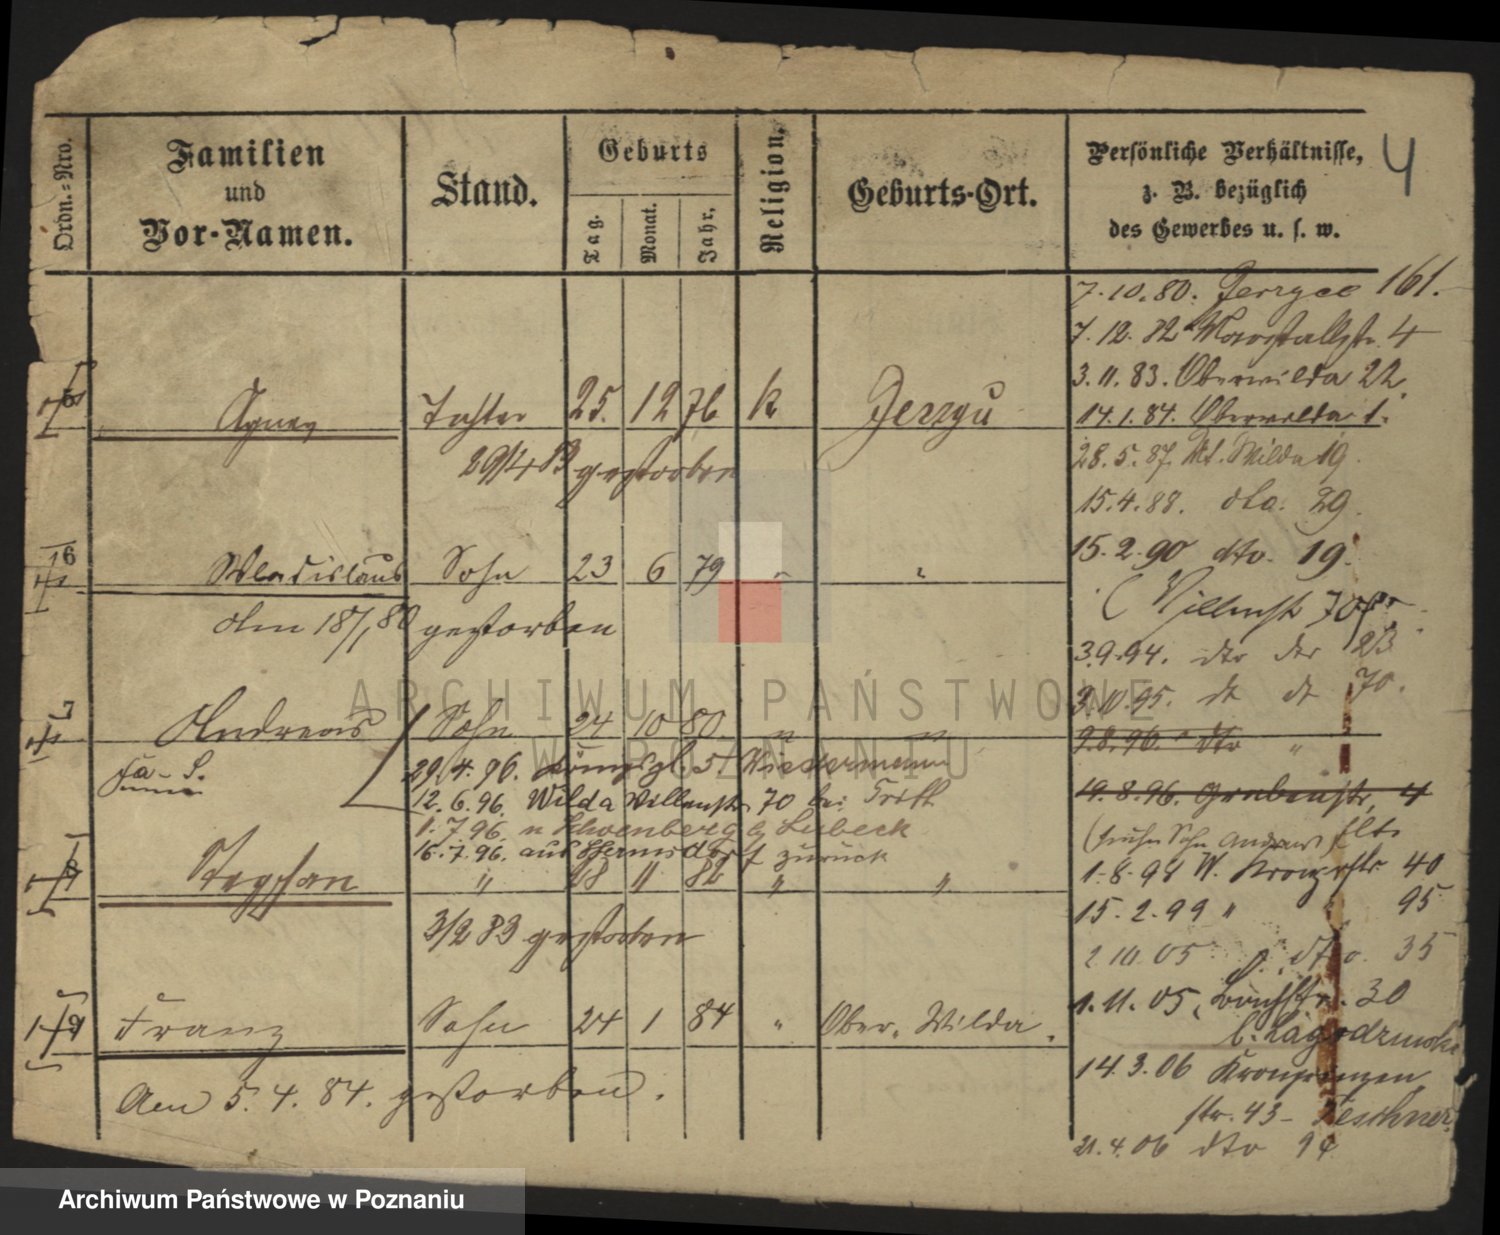 Ordn.=Nro.
Familien
und
Vor-Namen.
Stand.
Geburts
Tag.
Monat.
Jahr.
Religion.
Geburts-Ort.
Persönliche Verhältnisse,
z. B. bezüglich
des Gewerbes u. s. w.
4
7.10.80. Jerzyce 161.
7.12.82 Marstallstr. 4
3.11.83. Oberwilda 22
14.1.84. Oberwilda 1.
28.5.87. Wilda 19.
15.4.88. dto. 29.
15.2.90 dto. 19.
(Villenstr 70
3.9.94. dto der 23
3.10.95. dt dt 70.
9.8.96. dto "
19.8.96. Grabenstr. 4
(früher Sohn Andreas) Elt.
1.8.98 W. Kronprstr 40
15.2.99 " " 95
2 10.05 dto. 35
1.11.05, Bachstr. 30
b. Lagodzinski
14.3.06 Kronprinzen
str. 43 - Teschner
21.4.06 dto 94
5
Agnes Tochter 25. 12 76 k Jerzyce
29/4 83 gestorben
6
Wladislaus Sohn 23 6 79 " "
Am 18/1 80 gestorben
7
Andreas Sohn 24 10 80 " "
29.4.96. Königspl. 5 Wiedermann
12.6.96. Wilda Villenstr 70 bei
1.7.96. n Schoenberg b Lubeck
16.7.96. aus Hermsdorf zurück
8
Stephan " 28 11 82 " "
3/2 83 gestorben
9
Franz Sohn 24 1 84 " Ober. Wilda.
Am 5.4.84. gestorben.
ARCHIWUM PAŃSTWOWE
W POZNANIU
Archiwum Państwowe w Poznaniu